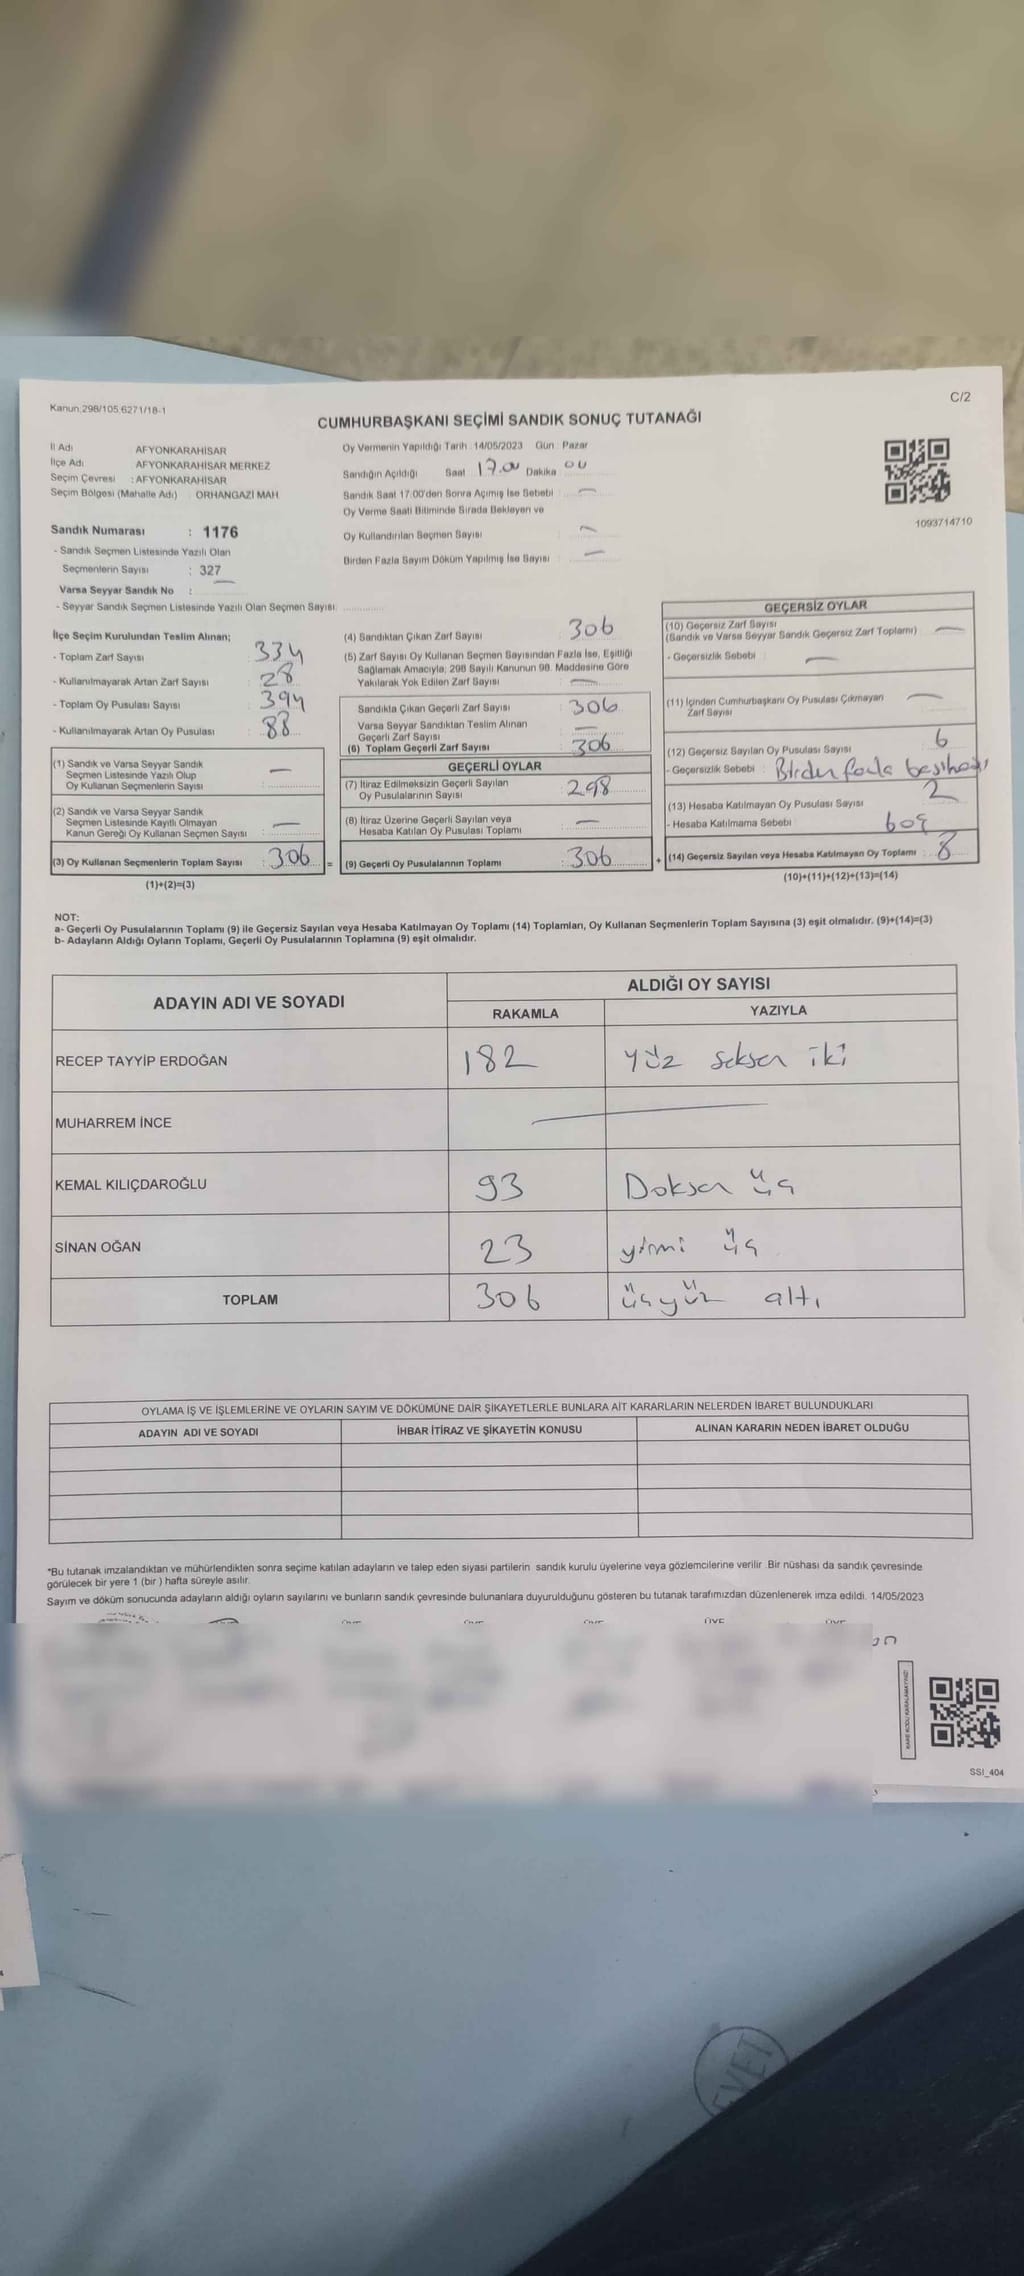 Kanun:298/105,6271/18-1
C/2
CUMHURBAŞKANI SEÇİMİ SANDIK SONUÇ TUTANAĞI
İl Adı AFYONKARAHİSAR
İlçe Adı AFYONKARAHİSAR MERKEZ
Seçim Çevresi : AFYONKARAHİSAR
Seçim Bölgesi (Mahalle Adı) : ORHANGAZİ MAH.
Sandık Numarası : 1176
- Sandık Seçmen Listesinde Yazılı Olan
Seçmenlerin Sayısı : 327
Varsa Seyyar Sandık No :
- Seyyar Sandık Seçmen Listesinde Yazılı Olan Seçmen Sayısı:
Oy Vermenin Yapıldığı Tarih : 14/05/2023 Gün : Pazar
Sandığın Açıldığı Saat 17.00 Dakika 00
Sandık Saat 17.00'den Sonra Açılmış İse Sebebi : —
Oy Verme Saati Bitiminde Sırada Bekleyen ve
Oy Kullandırılan Seçmen Sayısı : —
Birden Fazla Sayım Döküm Yapılmış İse Sayısı : —
1093714710
İlçe Seçim Kurulundan Teslim Alınan;
- Toplam Zarf Sayısı : 334
- Kullanılmayarak Artan Zarf Sayısı : 28
- Toplam Oy Pusulası Sayısı : 394
- Kullanılmayarak Artan Oy Pusulası : 88
(1) Sandık ve Varsa Seyyar Sandık
Seçmen Listesinde Yazılı Olup
Oy Kullanan Seçmenlerin Sayısı : —
(2) Sandık ve Varsa Seyyar Sandık
Seçmen Listesinde Kayıtlı Olmayan
Kanun Gereği Oy Kullanan Seçmen Sayısı : —
(3) Oy Kullanan Seçmenlerin Toplam Sayısı : 306 =
(1)+(2)=(3)
(4) Sandıktan Çıkan Zarf Sayısı : 306
(5) Zarf Sayısı Oy Kullanan Seçmen Sayısından Fazla İse, Eşitliği
Sağlamak Amacıyla; 298 Sayılı Kanunun 98. Maddesine Göre
Yakılarak Yok Edilen Zarf Sayısı : —
Sandıkla Çıkan Geçerli Zarf Sayısı : 306
Varsa Seyyar Sandıktan Teslim Alınan
Geçerli Zarf Sayısı : —
(6) Toplam Geçerli Zarf Sayısı : 306
GEÇERLİ OYLAR
(7) İtiraz Edilmeksizin Geçerli Sayılan
Oy Pusulalarının Sayısı : 298
(8) İtiraz Üzerine Geçerli Sayılan veya
Hesaba Katılan Oy Pusulası Toplamı : —
(9) Geçerli Oy Pusulalarının Toplamı : 306 +
GEÇERSİZ OYLAR
(10) Geçersiz Zarf Sayısı
(Sandık ve Varsa Seyyar Sandık Geçersiz Zarf Toplamı) : —
- Geçersizlik Sebebi : —
(11) İçinden Cumhurbaşkanı Oy Pusulası Çıkmayan
Zarf Sayısı : —
(12) Geçersiz Sayılan Oy Pusulası Sayısı : 6
- Geçersizlik Sebebi : Birden fazla
(13) Hesaba Katılmayan Oy Pusulası Sayısı : 2
- Hesaba Katılmama Sebebi : boş
(14) Geçersiz Sayılan veya Hesaba Katılmayan Oy Toplamı : 8
(10)+(11)+(12)+(13)=(14)
NOT:
a- Geçerli Oy Pusulalarının Toplamı (9) ile Geçersiz Sayılan veya Hesaba Katılmayan Oy Toplamı (14) Toplamları, Oy Kullanan Seçmenlerin Toplam Sayısına (3) eşit olmalıdır. (9)+(14)=(3)
b- Adayların Aldığı Oyların Toplamı, Geçerli Oy Pusulalarının Toplamına (9) eşit olmalıdır.
ADAYIN ADI VE SOYADI ALDIĞI OY SAYISI
RAKAMLA YAZIYLA
RECEP TAYYİP ERDOĞAN 182 yüz seksen iki
MUHARREM İNCE —
KEMAL KILIÇDAROĞLU 93 Doksan üç
SİNAN OĞAN 23 yirmi üç
TOPLAM 306 üçyüz altı
OYLAMA İŞ VE İŞLEMLERİNE VE OYLARIN SAYIM VE DÖKÜMÜNE DAİR ŞİKAYETLERLE BUNLARA AİT KARARLARIN NELERDEN İBARET BULUNDUKLARI
ADAYIN ADI VE SOYADI İHBAR İTİRAZ VE ŞİKAYETİN KONUSU ALINAN KARARIN NEDEN İBARET OLDUĞU
*Bu tutanak imzalandıktan ve mühürlendikten sonra seçime katılan adayların ve talep eden siyasi partilerin sandık kurulu üyelerine veya gözlemcilerine verilir. Bir nüshası da sandık çevresinde
görülecek bir yere 1 (bir) hafta süreyle asılır.
Sayım ve döküm sonucunda adayların aldığı oyların sayılarını ve bunların sandık çevresinde bulunanlara duyurulduğunu gösteren bu tutanak tarafımızdan düzenlenerek imza edildi. 14/05/2023
ÜYE ÜYE ÜYE ÜYE ÜYE
KARE KODU KARALAMAYINIZ!
SSI_404
EVET